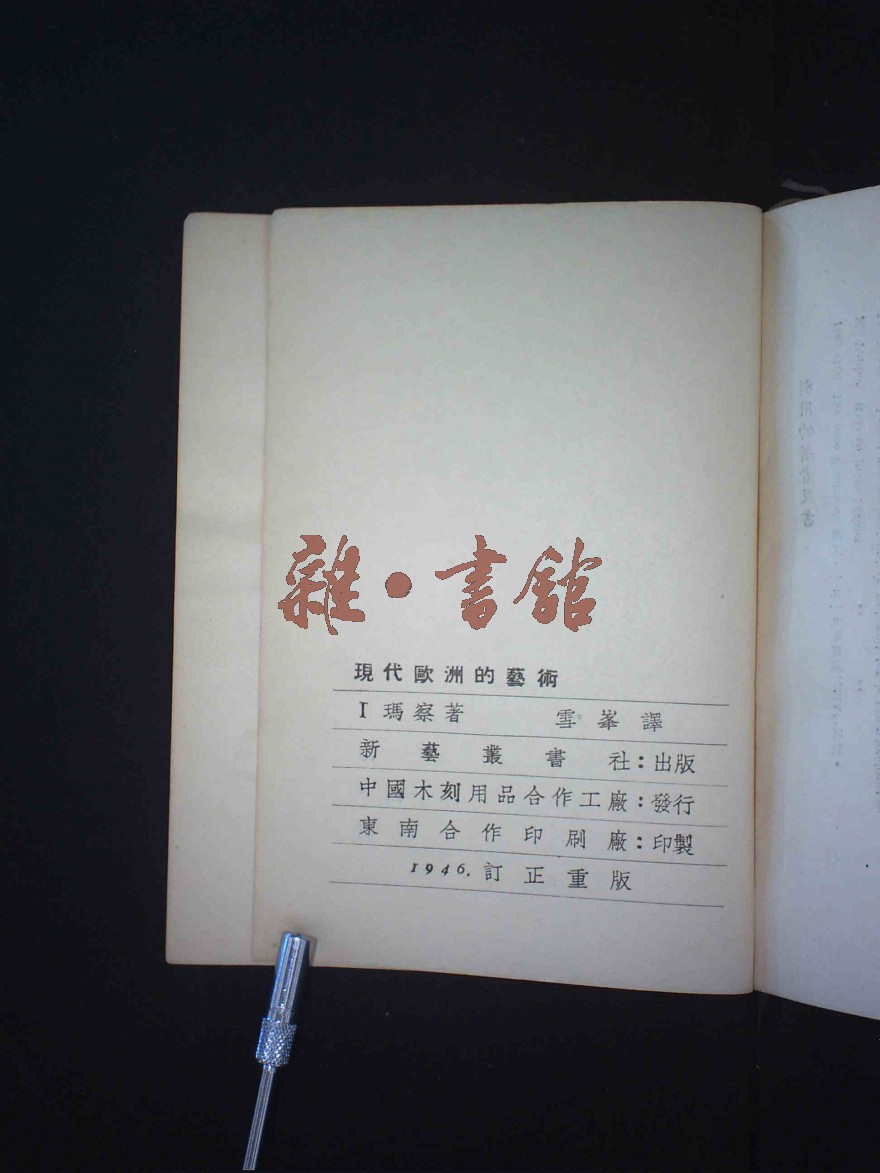 雜·書館
現代歐洲的藝術
I 瑪察著 雪峯譯
新藝叢書社:出版
中國木刻用品合作工廠:發行
東南合作印刷廠:印製
1946.訂正重版